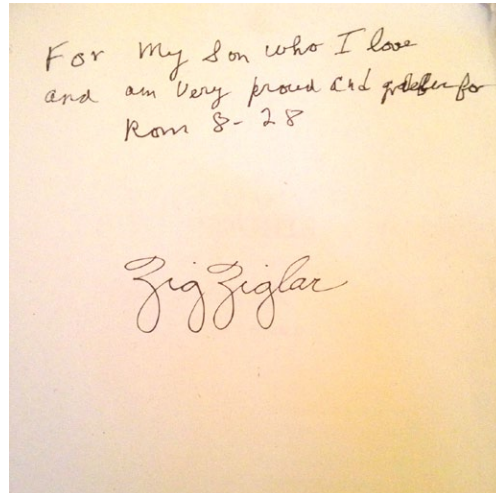 For My Son who I love
and am Very proud and grateful for
Rom 8-28
Zig Ziglar